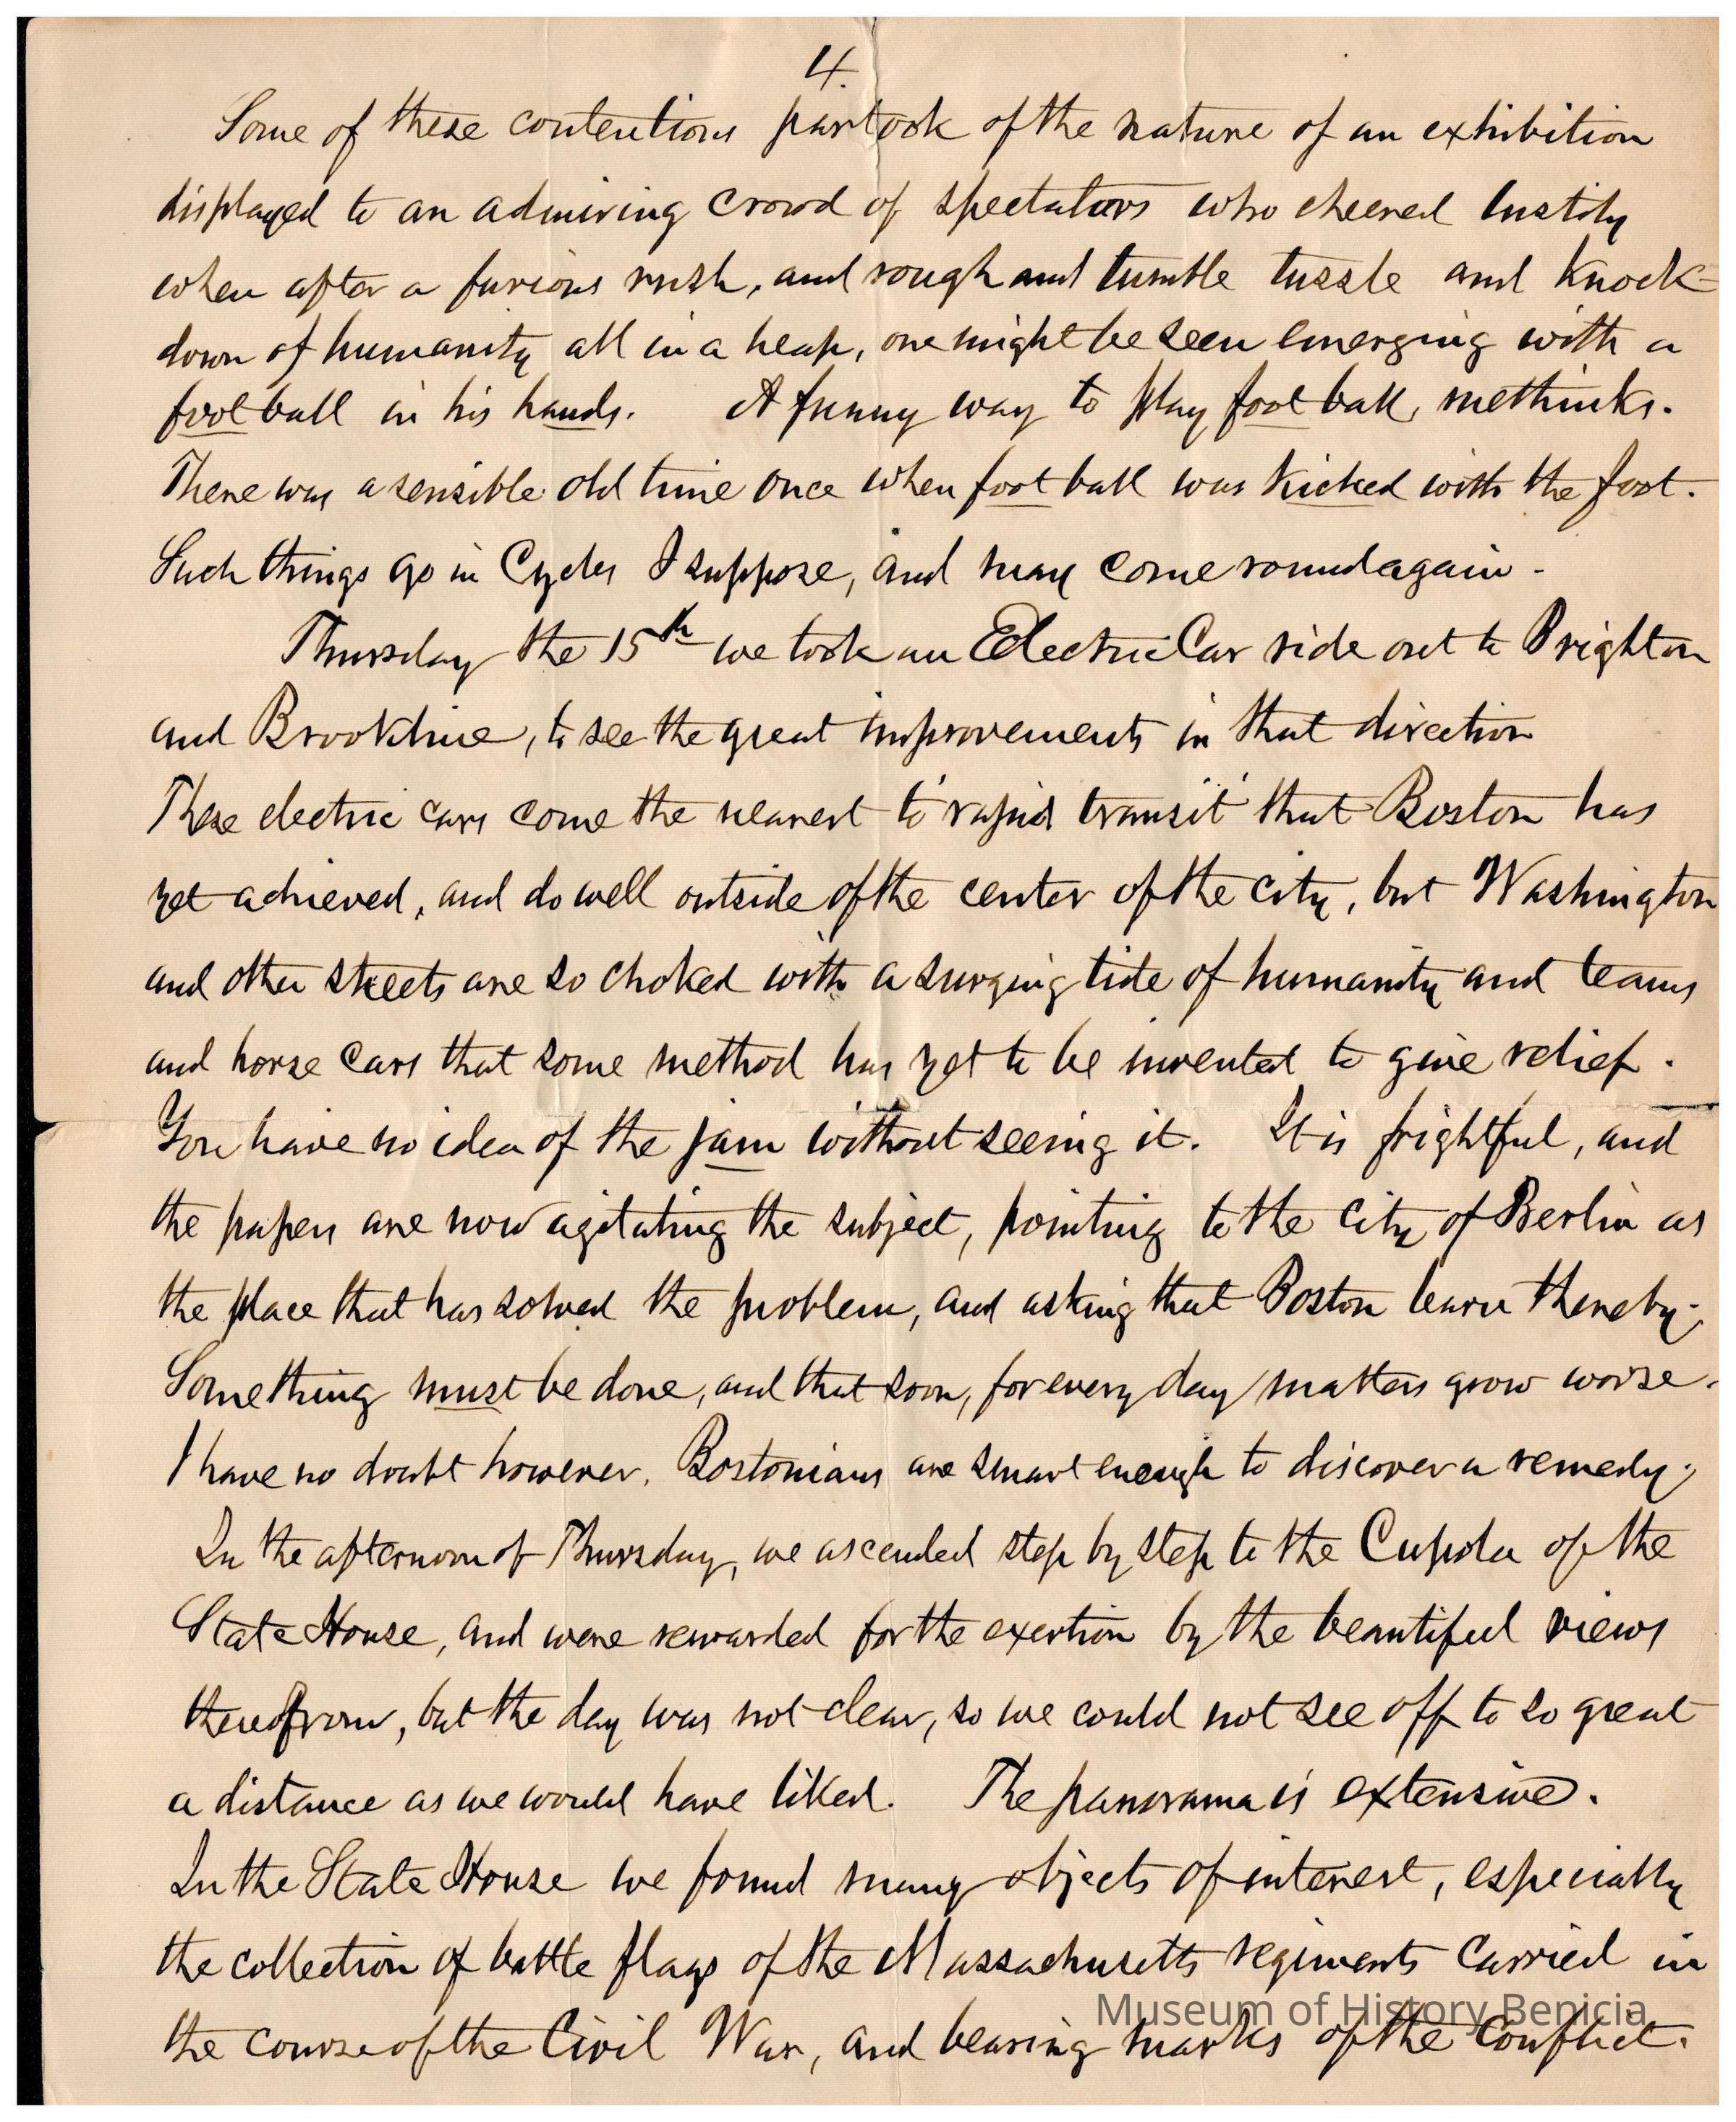 4.
Some of these contentions partook of the nature of an exhibition
displayed to an admiring crowd of spectators who cheered lustily
when after a furious rush, and rough and tumble tussle and knock-
down of humanity all in a heap, one might be seen emerging with a
foot ball in his hands. A funny way to play foot ball, methinks.
There was a sensible old time once when foot ball was kicked with the foot.
Such things go in Cycles I suppose, and may come round again.
Thursday the 15th we took an Electric Car ride out to Brighton
and Brookline, to see the great improvements in that direction
These electric cars come the nearest to 'rapid transit' that Boston has
yet achieved, and do well outside of the center of the city, but Washington
and other streets are so choked with a surging tide of humanity and teams
and horse cars that some method has yet to be invented to give relief.
You have no idea of the jam without seeing it. It is frightful, and
the papers are now agitating the subject, pointing to the city of Berlin as
the place that has solved the problem, and asking that Boston learn thereby.
Something must be done, and that soon, for every day matters grow worse.
I have no doubt however, Bostonians are smart enough to discover a remedy.
In the afternoon of Thursday, we ascended step by step to the Cupola of the
State House, and were rewarded for the exertion by the beautiful views
therefrom, but the day was not clear, so we could not see off to so great
a distance as we would have liked. The panorama is extensive.
In the State House we found many objects of interest, especially
the collection of battle flags of the Massachusetts regiments carried in
the course of the Civil War, and bearing marks of the Conflict.
Museum of History Benicia